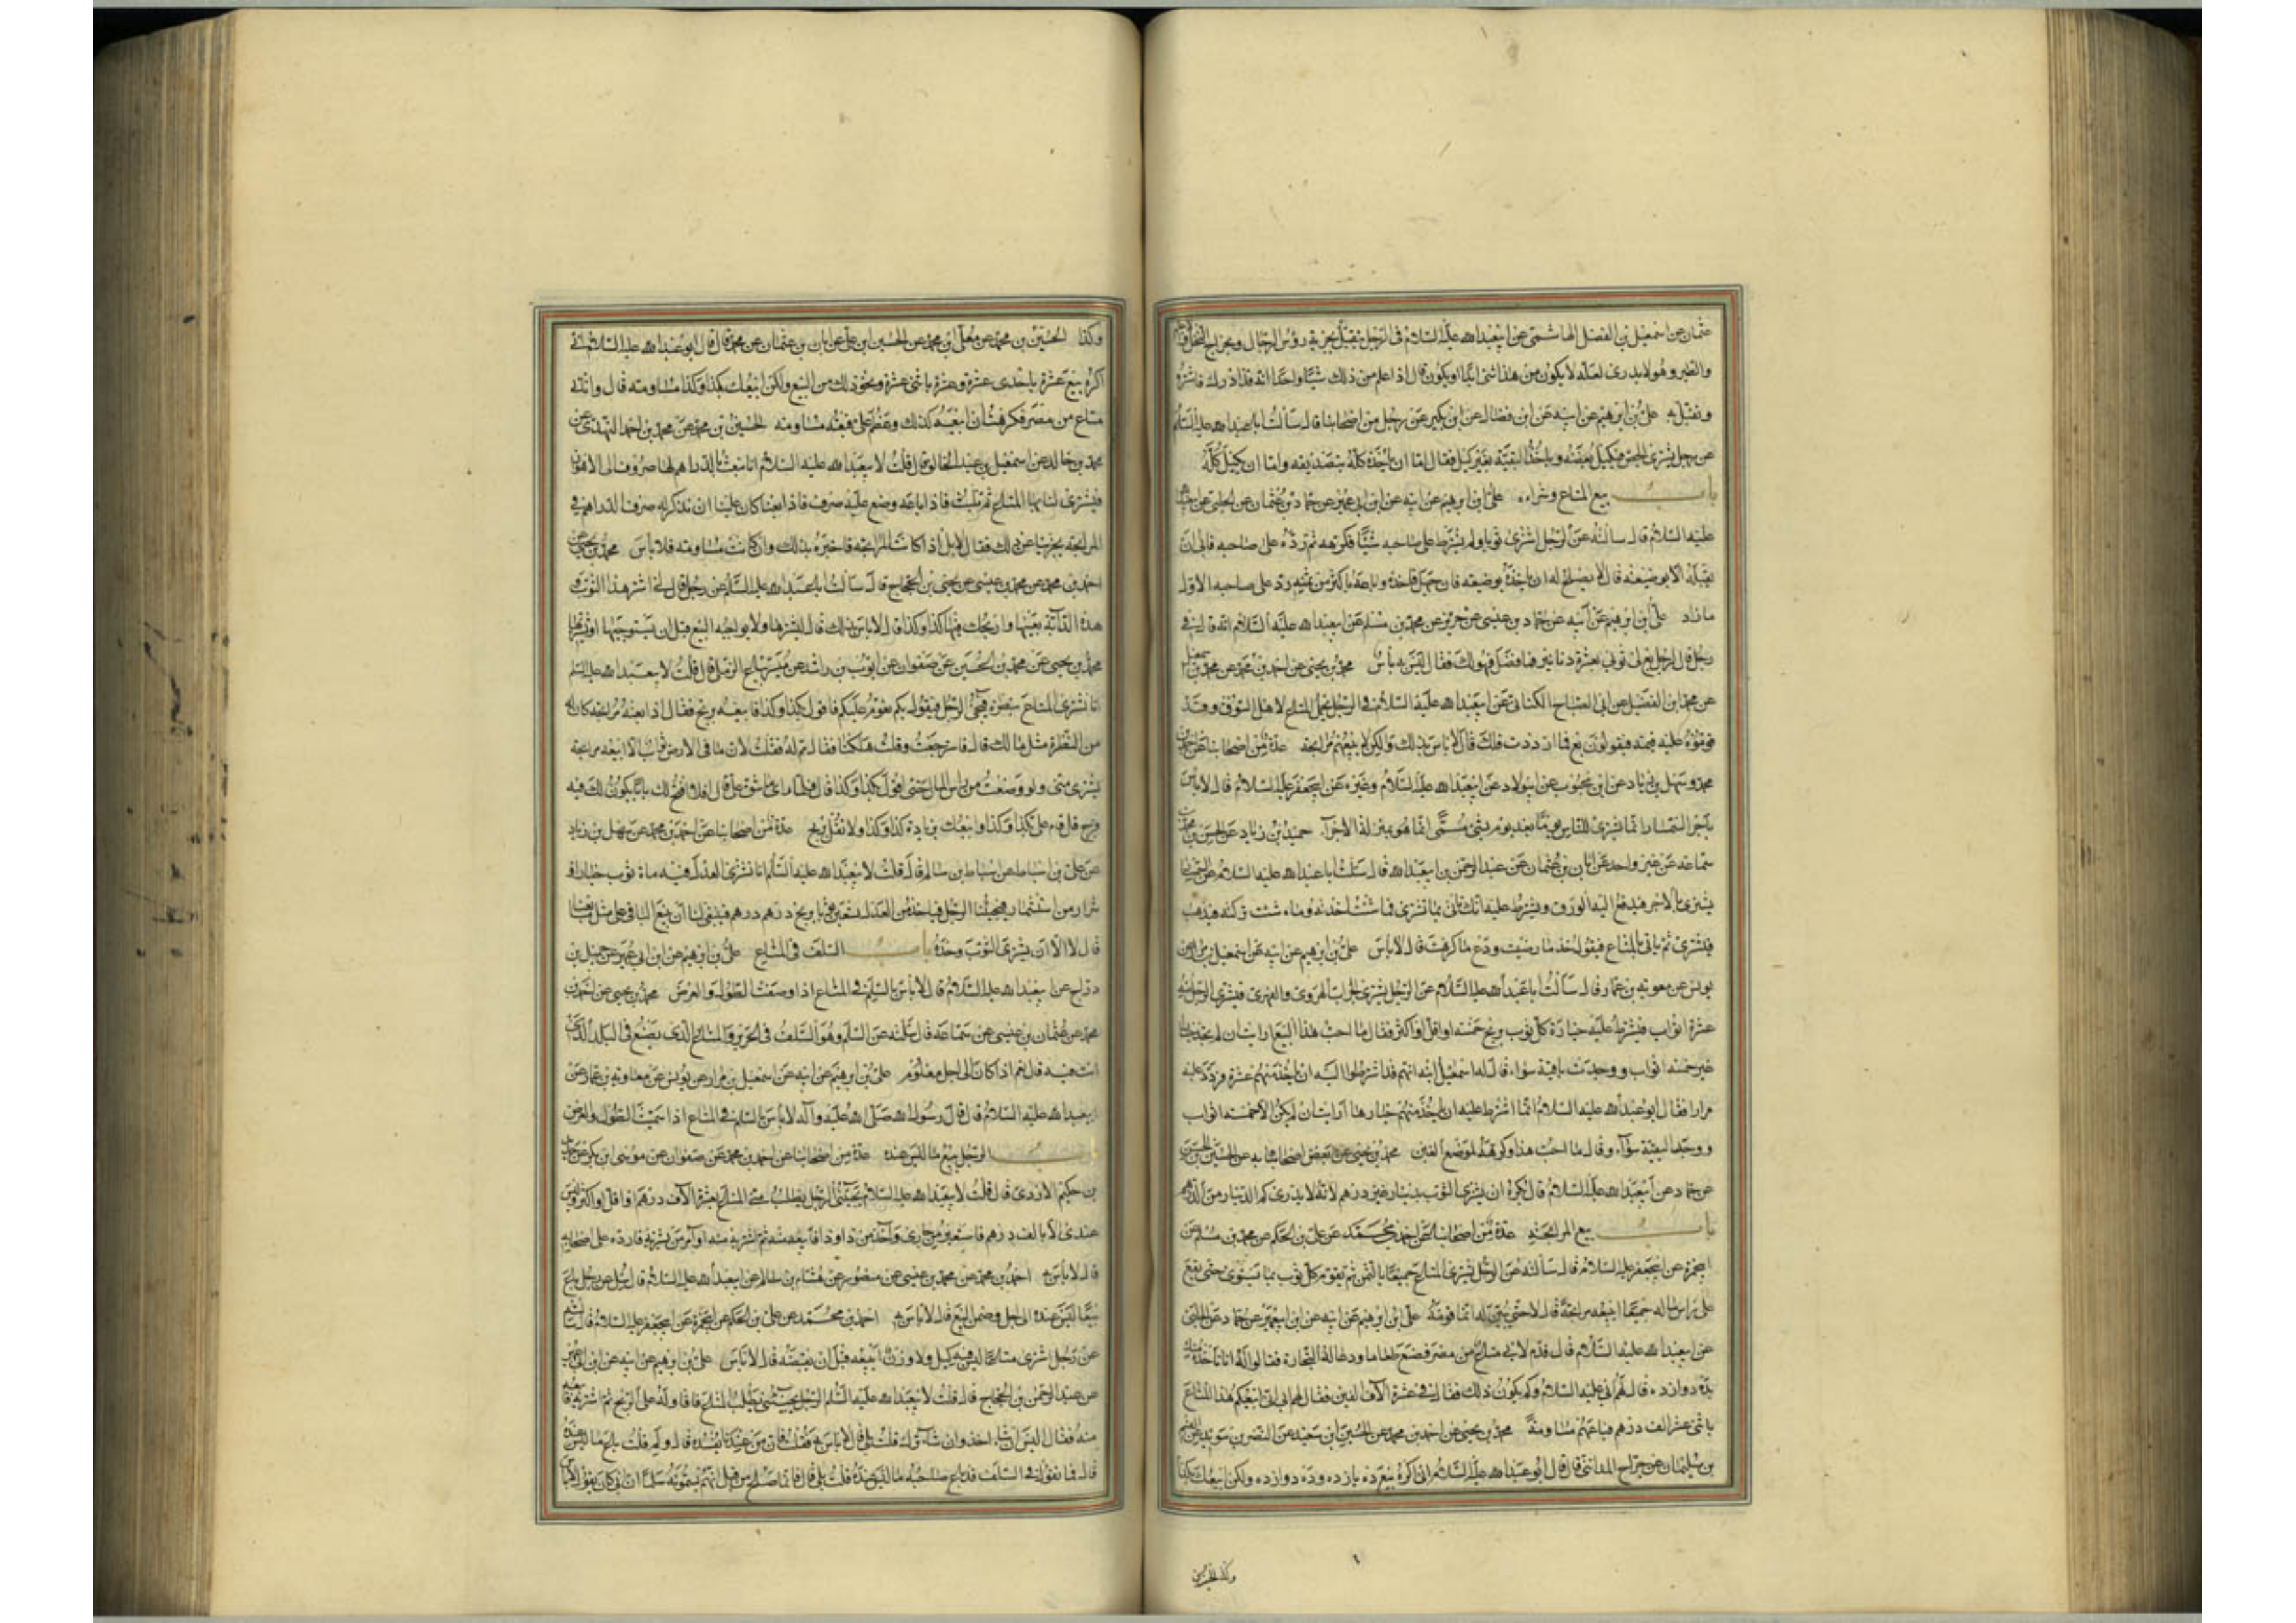 عثمان عن اسمعيل بن الفضل الهاشمى عن ابيعبد الله عليه السلام فى الرجل يتقبل بجزية رؤس الرجال وبخراج النخل
والطير وهو لا يدرى لعله لا يكون من هذا شئ ابدا او يكون قال اذا علم من ذلك شيئا واحدا انه قد ادرك فاشتره
وتقبل به على بن ابرهيم عن ابيه عن ابن فضال عن ابن بكير عن رجل من اصحابنا قال سألت ابا عبد الله عليه السلام
عن رجل يشترى الجص فيكيل بعضه وياخذ البقية بغير كيل فقال اما ان ياخذ كله بتصديقه واما ان يكيل كله
باب بيع المتاع وشراه على بن ابرهيم عن ابيه عن ابن ابى عمير عن حماد بن عثمان عن الحلبى عن ابيعبد الله
عليه السلام قال سالته عن الرجل اشترى ثوبا ولم يشترط على صاحبه شيئا فكرهه ثم رده على صاحبه فابى ان
يقبله الا بوضيعة قال لا يصلح له ان ياخذه بوضيعة فان جهل فاخذه وباعه باكثر من ثمنه رد على صاحبه الاول
ما زاد على بن ابرهيم عن ابيه عن حماد بن عيسى عن حريز عن محمد بن مسلم عن ابيعبد الله عليه السلام انه قال فى
رجل قال لرجل بع لى ثوبى بعشرة دنانير فما فضل فهو لك فقال ليس به بأس محمد بن يحيى عن احمد بن محمد عن محمد بن اسمعيل
عن محمد بن الفضيل عن ابى الصباح الكنانى عن ابيعبد الله عليه السلام فى الرجل يحمل المتاع لاهل السوق وقد
قوموه عليه قيمة فيقولون بع فما ازددت فلك قال لا باس بذلك ولكن لا يبيعهم مرابحة عدة من اصحابنا عن احمد بن
محمد وسهل بن زياد عن ابن محبوب عن ابى ولاد عن ابيعبد الله عليه السلام وغيره عن ابيجعفر عليه السلام قال لا باس
باجر السمسار انما يشترى للناس يوما بعد يوم بشئ مسمى انما هو بمنزلة الاجراء حميد بن زياد عن الحسن بن محمد بن
سماعة عن غير واحد عن ابان بن عثمان عن عبد الرحمن بن ابيعبد الله قال سئلت ابا عبد الله عليه السلام عن السمسار
يشترى بالاجر فيدفع اليه الورق ويشترط عليه انك تأتى بما تشترى فما شئت اخذته وما شئت تركته فيذهب
فيشترى ثم ياتى بالمتاع فيقول خذ ما رضيت ودع ما كرهت قال لا باس على بن ابرهيم عن ابيه عن اسمعيل بن مرار عن
يونس عن معوية بن عمار قال سألت ابا عبد الله عليه السلام عن الرجل يشترى الجراب الهروى والقوهى فيشترى الرجل منه
عشرة اثواب فيشترط عليه خياره كل ثوب بربح خمسة او اقل او اكثر فقال ما احب هذا البيع ارايت ان لم يجد خيارا
غير خمسة اثواب ووجدت بقية سواء قال له اسمعيل ابنه انهم قد اشترطوا عليه ان ياخذ منهم عشرة فردد عليه
مرارا فقال ابو عبد الله عليه السلام انما اشترط عليه ان ياخذ منهم خيارها ارايت ان لم يكن الا خمسة اثواب
ووجد البقية سواء وقال ما احب هذا وكرهه لموضع الغبن محمد بن يحيى عن بعض اصحابه عن الحسين بن الحسن
عن حماد عن ابيعبد الله عليه السلام قال يكره ان يشترى الثوب بدينار غير درهم لانه لا يدرى كم الدينار من الدرهم
باب بيع المرابحة عدة من اصحابنا عن احمد بن محمد عن على بن الحكم عن محمد بن مسلم عن
ابيحمزة عن ابيجعفر عليه السلام قال سألته عن الرجل يشترى المتاع جميعا بالثمن ثم يقوم كل ثوب بما يسوى حتى يقع
على راس ماله جميعا ايبيعه مرابحة قال لا حتى يبين له انما قومه على بن ابرهيم عن ابيه عن ابن ابيعمير عن حماد عن الحلبى
عن ابيعبد الله عليه السلام قال قدم لابى متاع من مصر فصنع طعاما ودعا له التجار فقالوا له انا ناخذه منك
بده دوازده قال لهم ابى عليه السلام وكم يكون ذلك فقالوا فى عشرة الاف الفين فقال لهم ابى انى ابيعكم هذا المتاع
باثنى عشر الف درهم فباعهم مساومة محمد بن يحيى عن احمد بن محمد عن الحسين بن سعيد عن النضر بن سويد عن القسم
بن سليمان عن جراح المداينى قال قال ابو عبد الله عليه السلام انى اكره بيع ده يازده وده دوازده ولكن ابيعك بكذا
وكذا الحسين
وكذا الحسين بن محمد عن معلى بن محمد عن الحسن بن على عن ابان بن عثمان عن محمد قال قال ابو عبد الله عليه السلام انى
اكره بيع عشرة باحدى عشرة وعشرة باثنى عشرة ونحو ذلك من البيع ولكن ابيعك بكذا وكذا مساومة قال واتانى
متاع من مصر فكرهت ان ابيعه كذلك وعظم على فبعته مساومة الحسين بن محمد عن محمد بن احمد النهدى عن
محمد بن خالد عن اسمعيل بن عبد الخالق قال قلت لابيعبد الله عليه السلام انا نبعث بالدراهم لها صروف الى الاهواز
فيشترى لنا بها المتاع ثم نلبث فاذا باعه وضع عليه صرف فاذا بعنا كان علينا ان نذكر له صرف الدراهم فى
المرابحة يجزينا عن ذلك فقال لا بل اذا كانت المرابحة فاخبره بذلك وان كانت مساومة فلا باس محمد بن يحيى عن
احمد بن محمد عن محمد بن عيسى عن يحيى بن الحجاج قال سألت ابا عبد الله عليه السلام عن رجل قال لى اشتر هذا الثوب و
هذه الدابة بعينها واربحك فيها كذا وكذا قال لا باس بذلك قال ليشترها ولا يواجبه البيع قبل ان يستوجبها او يشتريها
محمد بن يحيى عن محمد بن الحسين عن صفوان عن ايوب بن راشد عن ميسر بياع الزطى قال قلت لابيعبد الله عليه السلم
انا نشترى المتاع بنظرة فيجئ الرجل فيقول بكم تقوم عليكم فاقول بكذا وكذا فابيعه بربح فقال اذا بعته مرابحة كان له
من النظرة مثل مالك قال فاسترجعت وقلت هلكنا فقال مم له فقلت لان ما فى الارض ثوب الا ابيعه مرابحة
يشترى منى ولو وضعت من راس المال حتى اقول بكذا وكذا قال فلما راى ما شق على قال افلا افتح لك بابا يكون لك فيه
فرج قل قام على بكذا وكذا وابيعك بزيادة كذا وكذا ولا تقل بربح عدة من اصحابنا عن احمد بن محمد عن سهل بن زياد
عن على بن اسباط عن اسباط بن سالم قال قلت لابيعبد الله عليه السلم انا نشترى العدل فيه مائة ثوب خيار و
شرار دست شمار فيجيئنا الرجل فياخذ من العدل تسعين ثوبا بربح درهم درهم فينبغى لنا ان نبيع الباقى على مثل ما بعنا
قال لا الا ان يشترى الثوب وحده باب السلف فى المتاع على بن ابرهيم عن ابن ابى عمير عن جميل بن
دراج عن ابيعبد الله عليه السلام قال لا باس بالسلم فى المتاع اذا وصفت الطول والعرض محمد بن يحيى عن احمد بن
محمد عن عثمان بن عيسى عن سماعة قال سألته عن السلم وهو السلف فى الحرير والمتاع الذى يصنع فى البلد الذى
انت فيه قال نعم اذا كان الى اجل معلوم على بن ابرهيم عن ابيه عن اسمعيل بن مرار عن يونس عن معاوية بن عمار عن
ابيعبد الله عليه السلام قال قال رسول الله صلى الله عليه واله لا باس بالسلم فى المتاع اذا سميت الطول والعرض
باب الرجل يبيع ما ليس عنده عدة من اصحابنا عن احمد بن محمد عن صفوان عن موسى بن بكر عن حديد
بن حكيم الازدى قال قلت لابيعبد الله عليه السلام يجيئنى الرجل يطلب منى المتاع بعشرة الاف درهم او اقل او اكثر وليس
عندى الا بالف درهم فاستعير من جارى وآخذ من ذا وذا فابيعه منه ثم اشتريه منه او آمر من يشتريه فارده على اصحابه
قال لا باس به احمد بن محمد عن محمد بن عيسى عن منصور عن هشام بن سالم عن ابيعبد الله عليه السلام قال سئل عن رجل باع
بيعا ليس عنده الى اجل وضمن البيع قال لا باس به احمد بن محمد عن على بن الحكم عن ابيحمزة عن ابيجعفر عليه السلام قال سألته
عن رجل اشترى متاعا ليس فيه كيل ولا وزن ايبيعه قبل ان يقبضه قال لا باس على بن ابرهيم عن ابيه عن ابن ابى عمير
عن عبد الرحمن بن الحجاج قال قلت لابيعبد الله عليه السلم الرجل يجيئنى يطلب المتاع فاقاوله على الربح ثم اشتريه فابيعه
منه فقال اليس ان شاء اخذ وان شاء ترك قلت بلى قال لا باس به فقلت فان من عندنا يفسده قال ولم قلت باع ما ليس عنده
قال فما تقول فى السلف قد باع صاحبه ما ليس عنده قلت بلى قال فانما صلح من قبل انهم يسمونه سلما ان ابى كان يقول لا باس